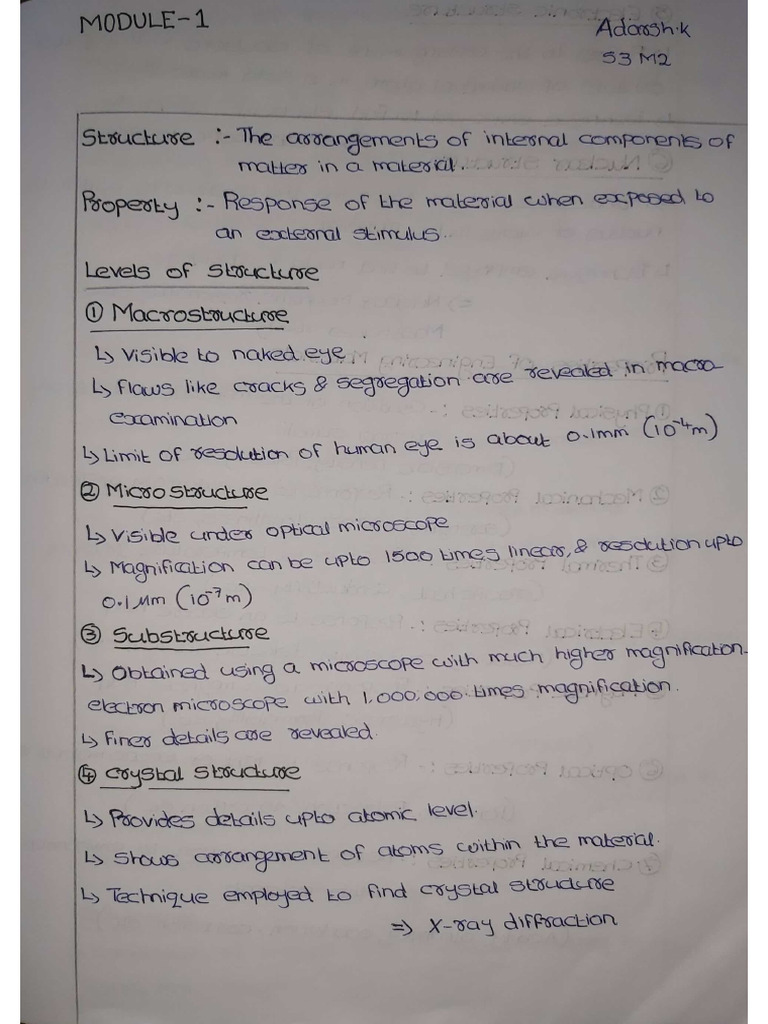 MODULE-1
Adarsh.K
S3 M2
Structure :- The arrangements of internal components of
matter in a material.
Property :- Response of the material when exposed to
an external stimulus.
Levels of structure
① Macrostructure
↳ Visible to naked eye
↳ Flaws like cracks & segregation are revealed in macro
examination
↳ Limit of resolution of human eye is about 0.1mm (10⁻⁴m)
② Micro structure
↳ Visible under optical microscope
↳ Magnification can be upto 1500 times linear, & resolution upto
0.1 μm (10⁻⁷m)
③ Substructure
↳ Obtained using a microscope with much higher magnification.
electron microscope with 1,000,000 times magnification.
↳ Finer details are revealed.
④ Crystal structure
↳ Provides details upto atomic level.
↳ Shows arrangement of atoms within the material.
↳ Technique employed to find crystal structure
⇒ X-ray diffraction